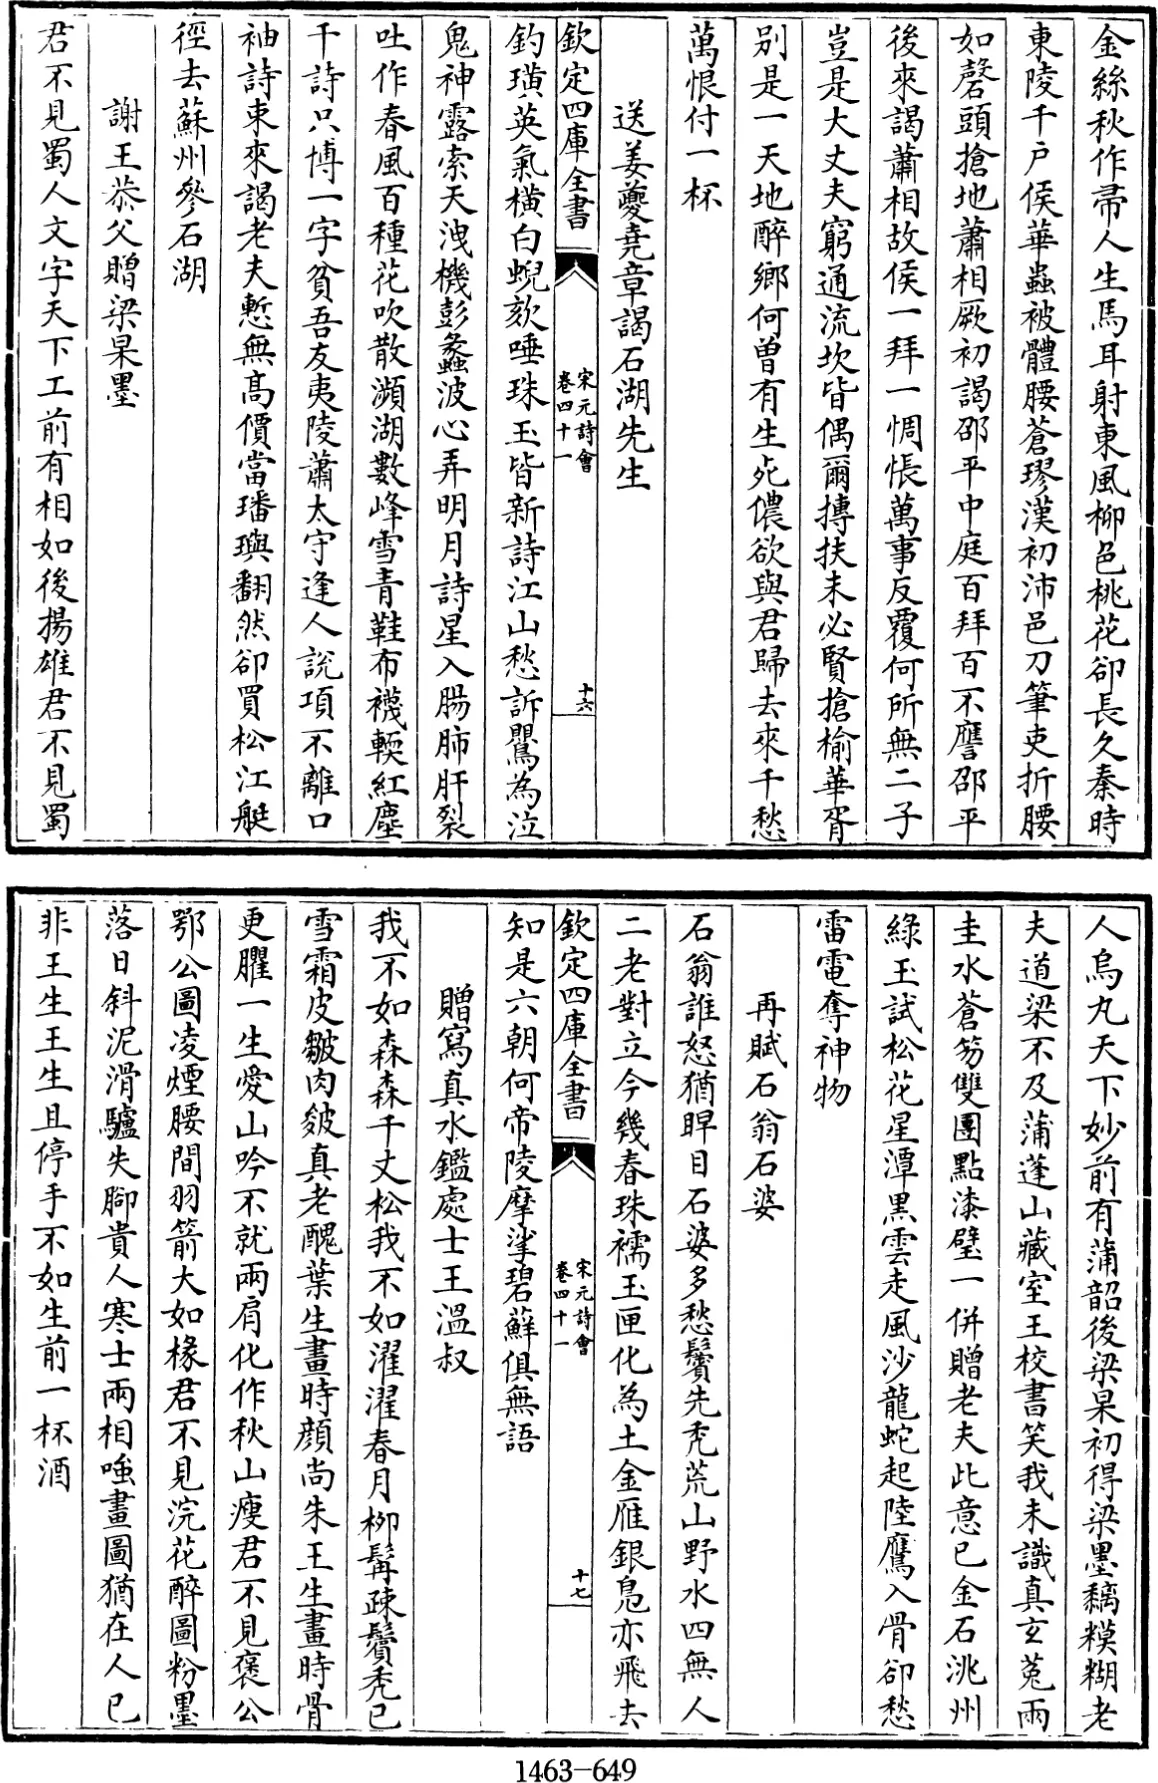 金絲秋作帚人生馬耳射東風柳色桃花卻長久秦時
東陵千户侯華蟲被體腰蒼璆漢初沛邑刀筆吏折腰
如磬頭搶地蕭相厥初謁邵平中庭百拜百不譍邵平
後來謁蕭相故侯一拜一惆悵萬事反覆何所無二子
豈是大丈夫窮通流坎皆偶爾摶扶未必賢搶榆華胥
别是一天地醉鄉何曽有生死儂欲與君歸去來千愁
萬恨付一杯
送姜夔堯章謁石湖先生
欽定四庫全書
宋元詩會
卷四十一
十六
釣璜英氣横白蜺欬唾珠玉皆新詩江山愁訴鸎為泣
鬼神露索天洩機彭蠡波心弄明月詩星入腸肺肝裂
吐作春風百種花吹散瀕湖數峰雪青鞋布襪輭紅塵
千詩只博一字貧吾友夷陵蕭太守逢人說項不離口
袖詩東來謁老夫慙無高價當璠璵翻然卻買松江艇
徑去蘇州參石湖
謝王恭父贈梁杲墨
君不見蜀人文字天下工前有相如後揚雄君不見蜀
人烏丸天下妙前有蒲韶後梁杲初得梁墨黐糢糊老
夫道梁不及蒲蓬山藏室王校書笑我未識真玄菟兩
圭水蒼笏雙團點漆璧一併贈老夫此意已金石洮州
綠玉試松花星潭黒雲走風沙龍蛇起陸鷹入骨卻愁
雷電奪神物
再賦石翁石婆
石翁誰怒猶睅目石婆多愁鬢先秃荒山野水四無人
二老對立今幾春珠襦玉匣化為土金雁銀鳬亦飛去
欽定四庫全書
宋元詩會
卷四十一
十七
知是六朝何帝陵摩挲碧蘚俱無語
贈寫真水鑑處士王温叔
我不如森森千丈松我不如濯濯春月栁髯疎鬢秃已
雪霜皮皺肉皴真老醜葉生畫時顔尚朱王生畫時骨
更臞一生愛山吟不就兩肩化作秋山瘦君不見褒公
鄂公圖凌煙腰間羽箭大如椽君不見浣花醉圖粉墨
落日斜泥滑驢失腳貴人寒士兩相嗤畫圖猶在人已
非王生王生且停手不如生前一杯酒
1463-649